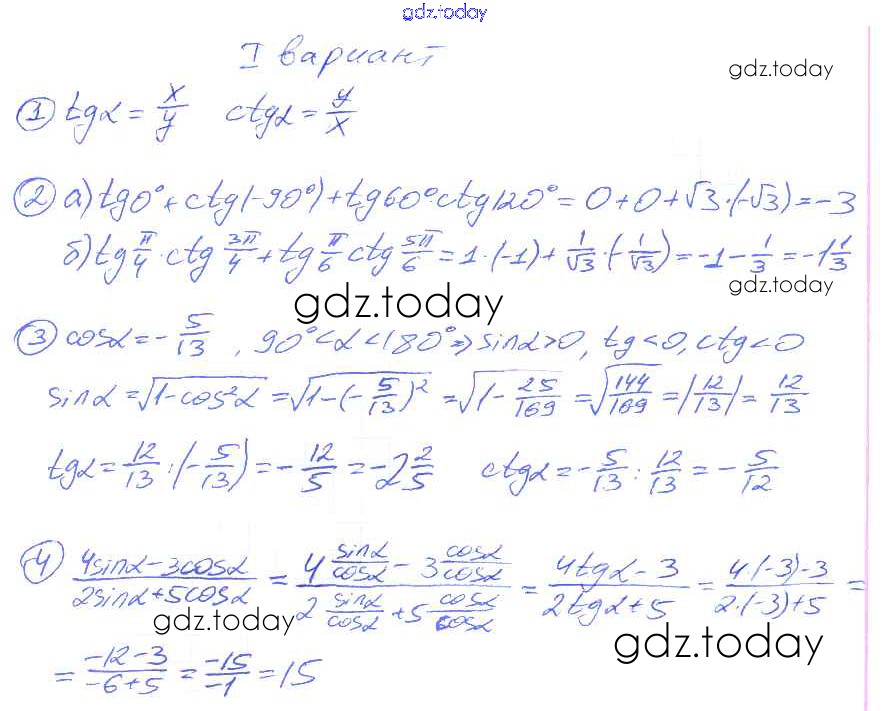 gdz.today
I вариант
gdz.today
① tgα = x/y   ctgα = y/x
② а) tg0° + ctg(-90°) + tg60° · ctg120° = 0 + 0 + √3 · (-√3) = -3
б) tg π/4 · ctg 3π/4 + tg π/6 ctg 5π/6 = 1 · (-1) + 1/√3 · (-1/√3) = -1 - 1/3 = -1 1/3
gdz.today
gdz.today
③ cosα = - 5/13, 90° < α < 180° ⇒ sinα > 0, tg < 0, ctg < 0
sinα = √(1 - cos²α) = √(1 - (-5/13)²) = √(1 - 25/169) = √(144/169) = |12/13| = 12/13
tgα = 12/13 : (-5/13) = - 12/5 = -2 2/5   ctgα = - 5/13 : 12/13 = - 5/12
④ (4sinα - 3cosα)/(2sinα + 5cosα) = (4 sinα/cosα - 3 cosα/cosα)/(2 sinα/cosα + 5 cosα/cosα) = (4tgα - 3)/(2tgα + 5) = (4·(-3) - 3)/(2·(-3) + 5) =
gdz.today
gdz.today
= (-12 - 3)/(-6 + 5) = -15/-1 = 15